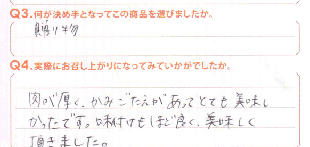 Q3.何が決め手となってこの商品を選びましたか。
贈り物
Q4.実際にお召し上がりになってみていかがでしたか。
肉が厚く、かみごたえがあってとても美味し
かったです。味付けもほど良く、美味しく
頂きました。